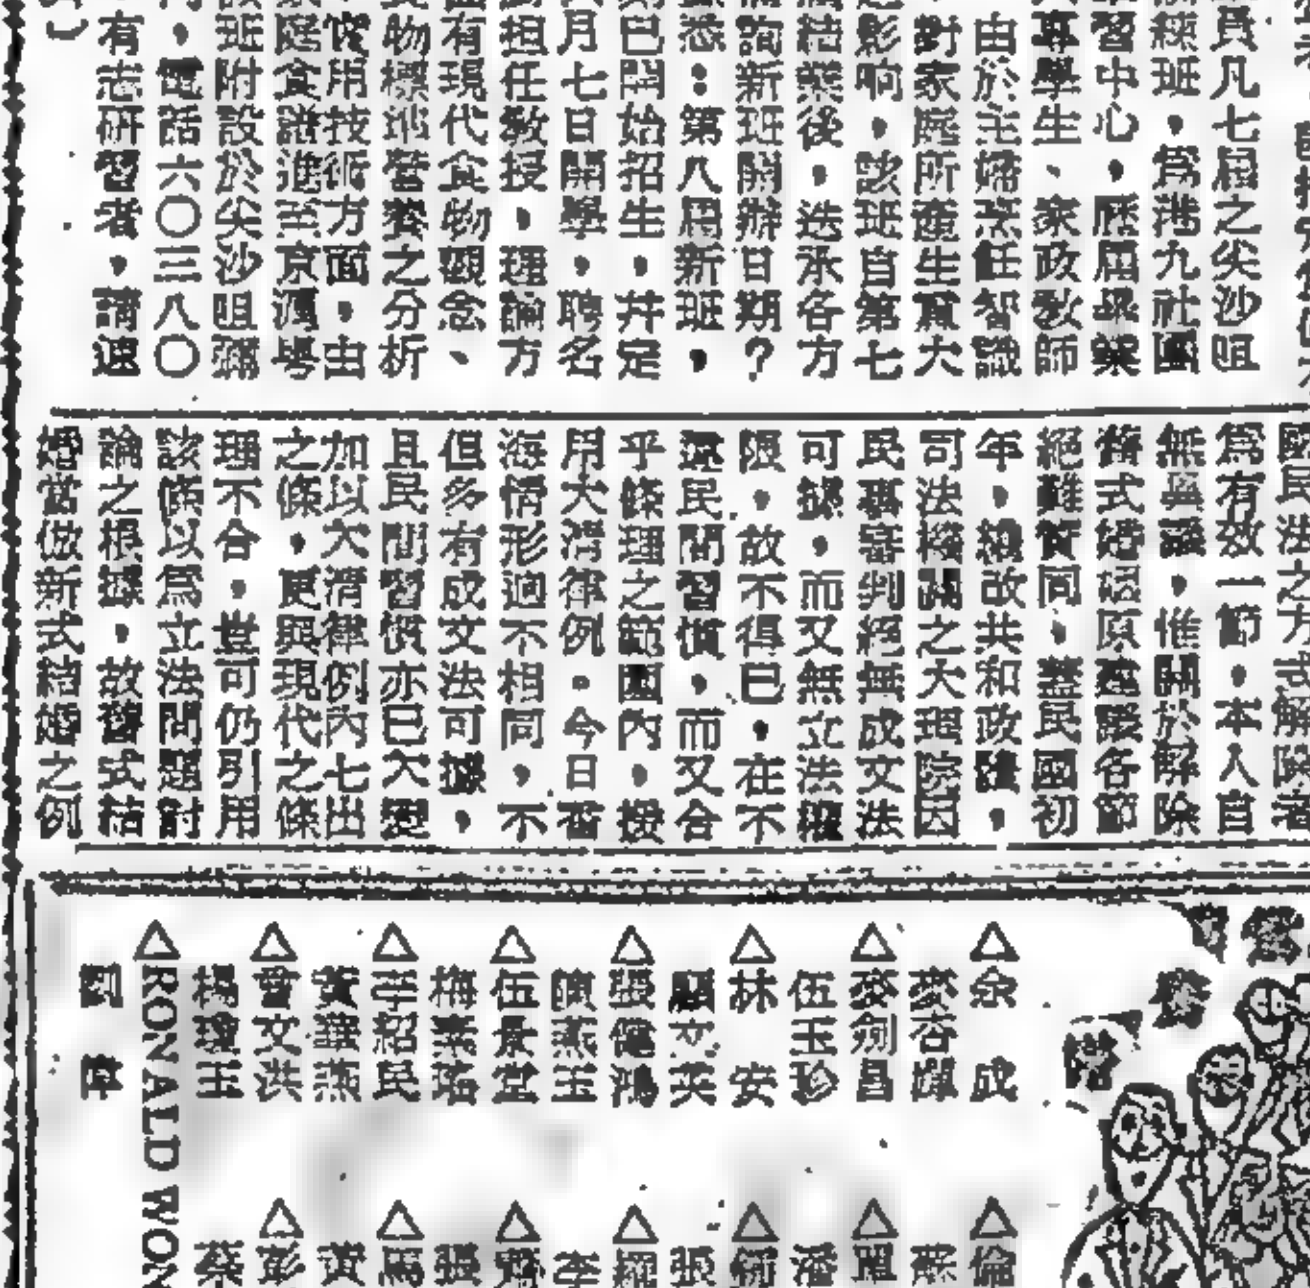 爲凡七屆之尖沙咀
練班，爲港九社團
習中心，歷屆畢業
專學生、家政教師
由於主婦烹飪智識
對家庭所產生買大
影响，該班自第七
結業後，迭承各方
詢新班開辦日期？
悉：第八屆新班，
巳開始招生，并定
月七日開學，聘名
担任教授，理論方
有現代食物觀念、
物標地營養之分析
用技術方面，由
庭食譜進至京滬粵
班附設於尖沙咀
，電話六〇三八〇
有志研習者，請速
國民法之方式解除者
爲有效一節，本人自
無異議，惟關於解除
舊式婚姻原建議各節
絕難贊同，蓋民國初
年，縱改共和政體，
司法機關之大理院因
民事審判絕無成文法
可據，而又無立法權
限，故不得巳，在不
違民間習慣，而又合
乎條理之範圍內，援
用大清律例。今日香
海情形迥不相同，不
但多有成文法可據，
且民間習慣亦巳大變
加以大清律例內七出
之條，更與現代之條
理不合，豈可仍引用
該條以爲立法問題討
論之根據，故舊式結
婚當倣新式結婚之例
△余　成
麥杏嬋
△麥劍昌
伍玉珍
△林　安
顧文英
△張健鴻
陳燕玉
△伍景堂
梅素瑤
△李紹民
黃華燕
△曾文洪
楊瓊玉
△RONALD WON
劉　萍
△倫
蘇
△單
潘
△
張
△羅
李
△
張
△馬
黃
△彭
蔡